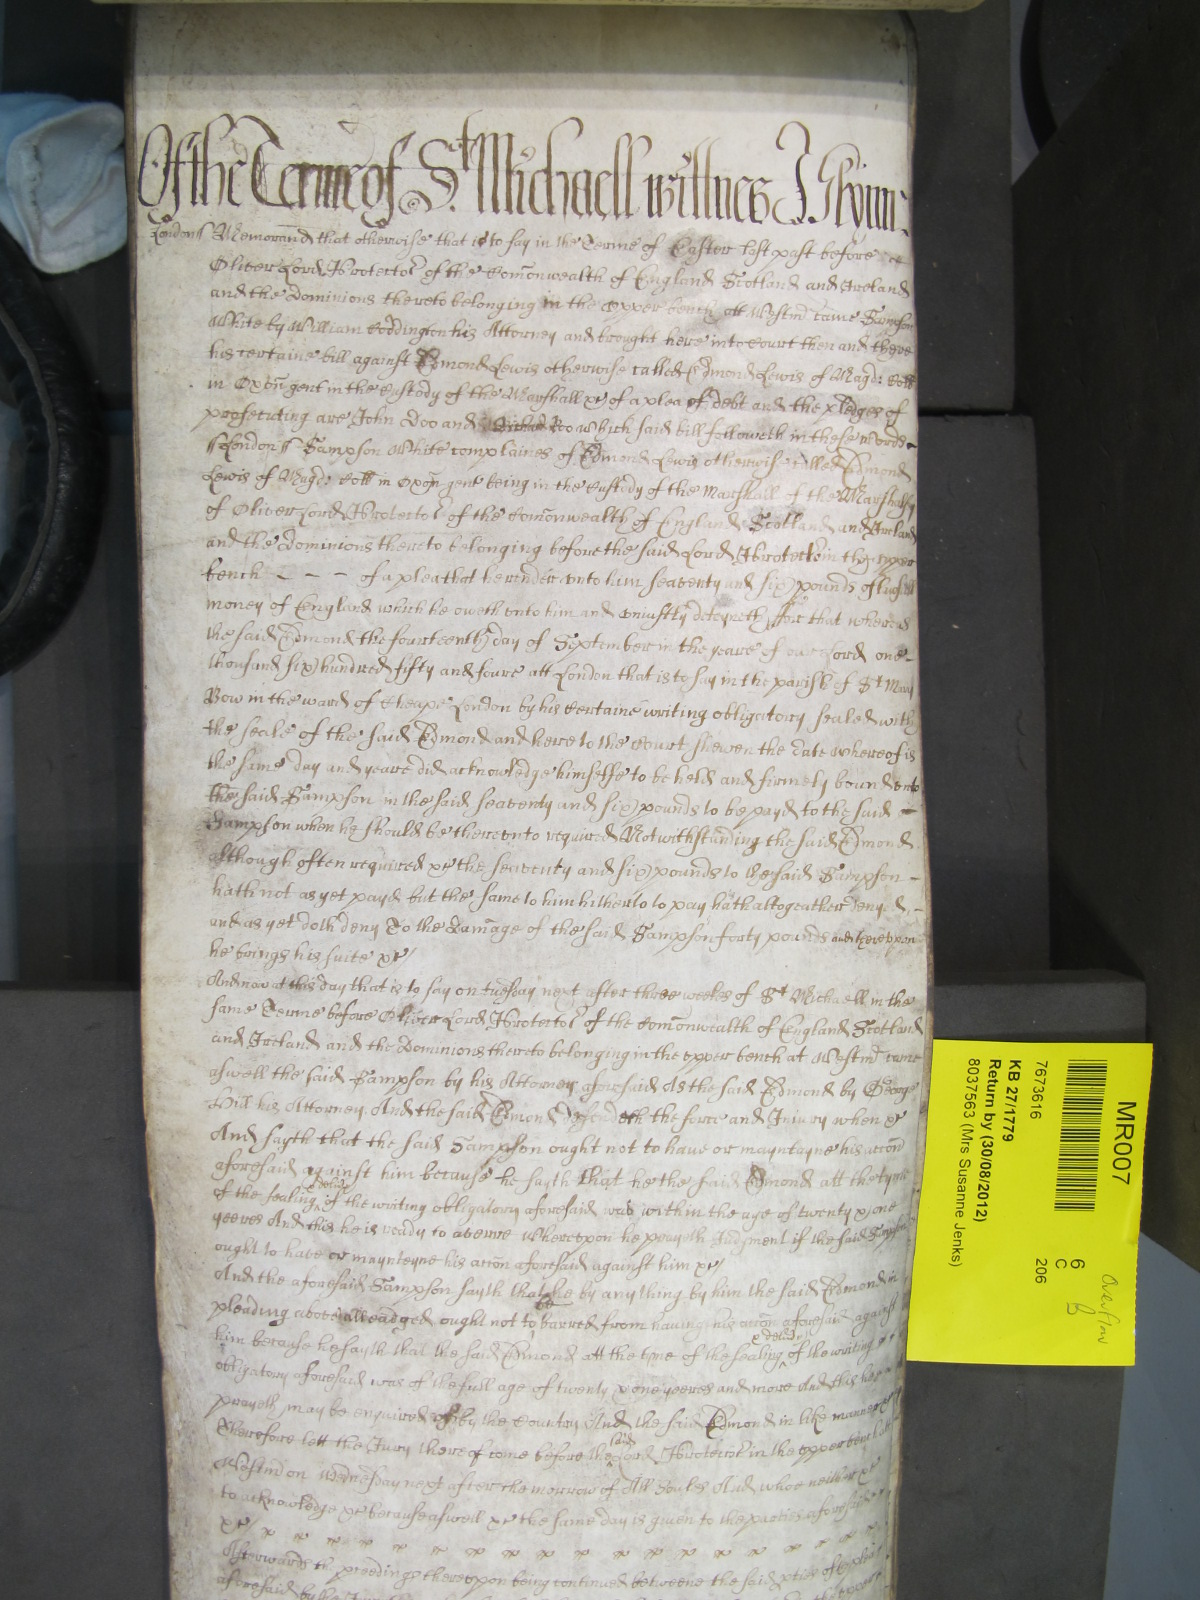 Of the Terme of St. Michaell wittnes J. Glynn:
London ss Memorand that otherwise that is to say in the Terme of Easter last past before
Oliver Lord Protector of the Comonwealth of England Scotland and Ireland
and the Dominions thereto belonging in the upper bench att Westm came Sampson
White by William Coddington his Attorney and brought here into Court then and there
his certaine bill against Edmond Lewis otherwise called Edmond Lewis of Magd: Coll
in Oxon gent in the Custody of the Marshall &c of a plea of debt and the pledges of
prosecuting are John Doo and Richard Roo which said bill followeth in these words
London ss Sampson White complaines of Edmond Lewis otherwise called Edmond
Lewis of Magd: Coll in Oxon gent being in the Custody of the Marshall of the Marshalsy
of Oliver Lord Protector of the Comonwealth of England Scotland and Ireland
and the Dominions thereto belonging before the said Lord Protector in the upper
bench - - - of a plea that he render unto him seaventy and six pounds of lawfull
money of England which he oweth unto him and uniustly deteyneth for that whereas
the said Edmond the fourteenth day of September in the yeare of our Lord one
thousand six hundred fifty and foure att London that is to say in the parish of St Mary
Bow in the ward of Cheape London by his certaine writing obligatory sealed with
the seale of the said Edmond and here to the Court shewen the date whereof is
the same day and yeare did acknowledge himselfe to be held and firmely bound unto
the said Sampson in the said seaventy and six pounds to be payd to the said
Sampson when he should be thereunto required Notwithstanding the said Edmond
although often required &c the seaventy and six pounds to the said Sampson -
hath not as yet payd but the same to him hitherto to pay hath altogeather denyed -
and as yet doth deny To the damage of the said Sampson forty pounds and thereupon
he brings his suite &c
And now at this day that is to say on tuesday next after three weekes of St Michaell in the
same Terme before Oliver Lord Protector of the Comonwealth of England Scotland
and Ireland and the Dominions thereto belonging in the upper bench at Westm came
aswell the said Sampson by his Attorney aforesaid As the said Edmond by George
Hill his Attorney And the said Edmond defendeth the force and Iniury when &c
And sayth that the said Sampson ought not to have or mayntayne his accon
aforesaid against him because he sayth that he the said Edmond att the tyme
of the sealing & delivy of the writing obligatory aforesaid was within the age of twenty & one
yeeres And this he is ready to averre Whereupon he prayeth Iudgment if the said Sampson
ought to have or maynteyne his accon aforesaid against him &c
And the aforesaid Sampson sayth that he by any thing by him the said Edmond in
pleading above alleadged ought not to be barred from having his accon aforesaid against
him because he sayth that the said Edmond att the tyme of the sealing & delivy of the writing
obligatory aforesaid was of the full age of twenty & one yeeres and more And this he
prayeth may be enquired of by the Country And the said Edmond in like manner
Therefore lett the Jury thereof come before the said Lord Protector in the upper bench att
Westm on Wednesday next after the morrow of All Soules And whoe neither &c
to acknowledge &c because aswell &c the same day is given to the parties aforesaid
&c
Afterwards the proceedings thereupon being continued betweene the said pties of the plea
aforesaid by the Jury
MR007
6
C
206
7673616
KB 27/1779
Return by (30/08/2012)
8037563 (Mrs Susanne Jenks)
overflow
B